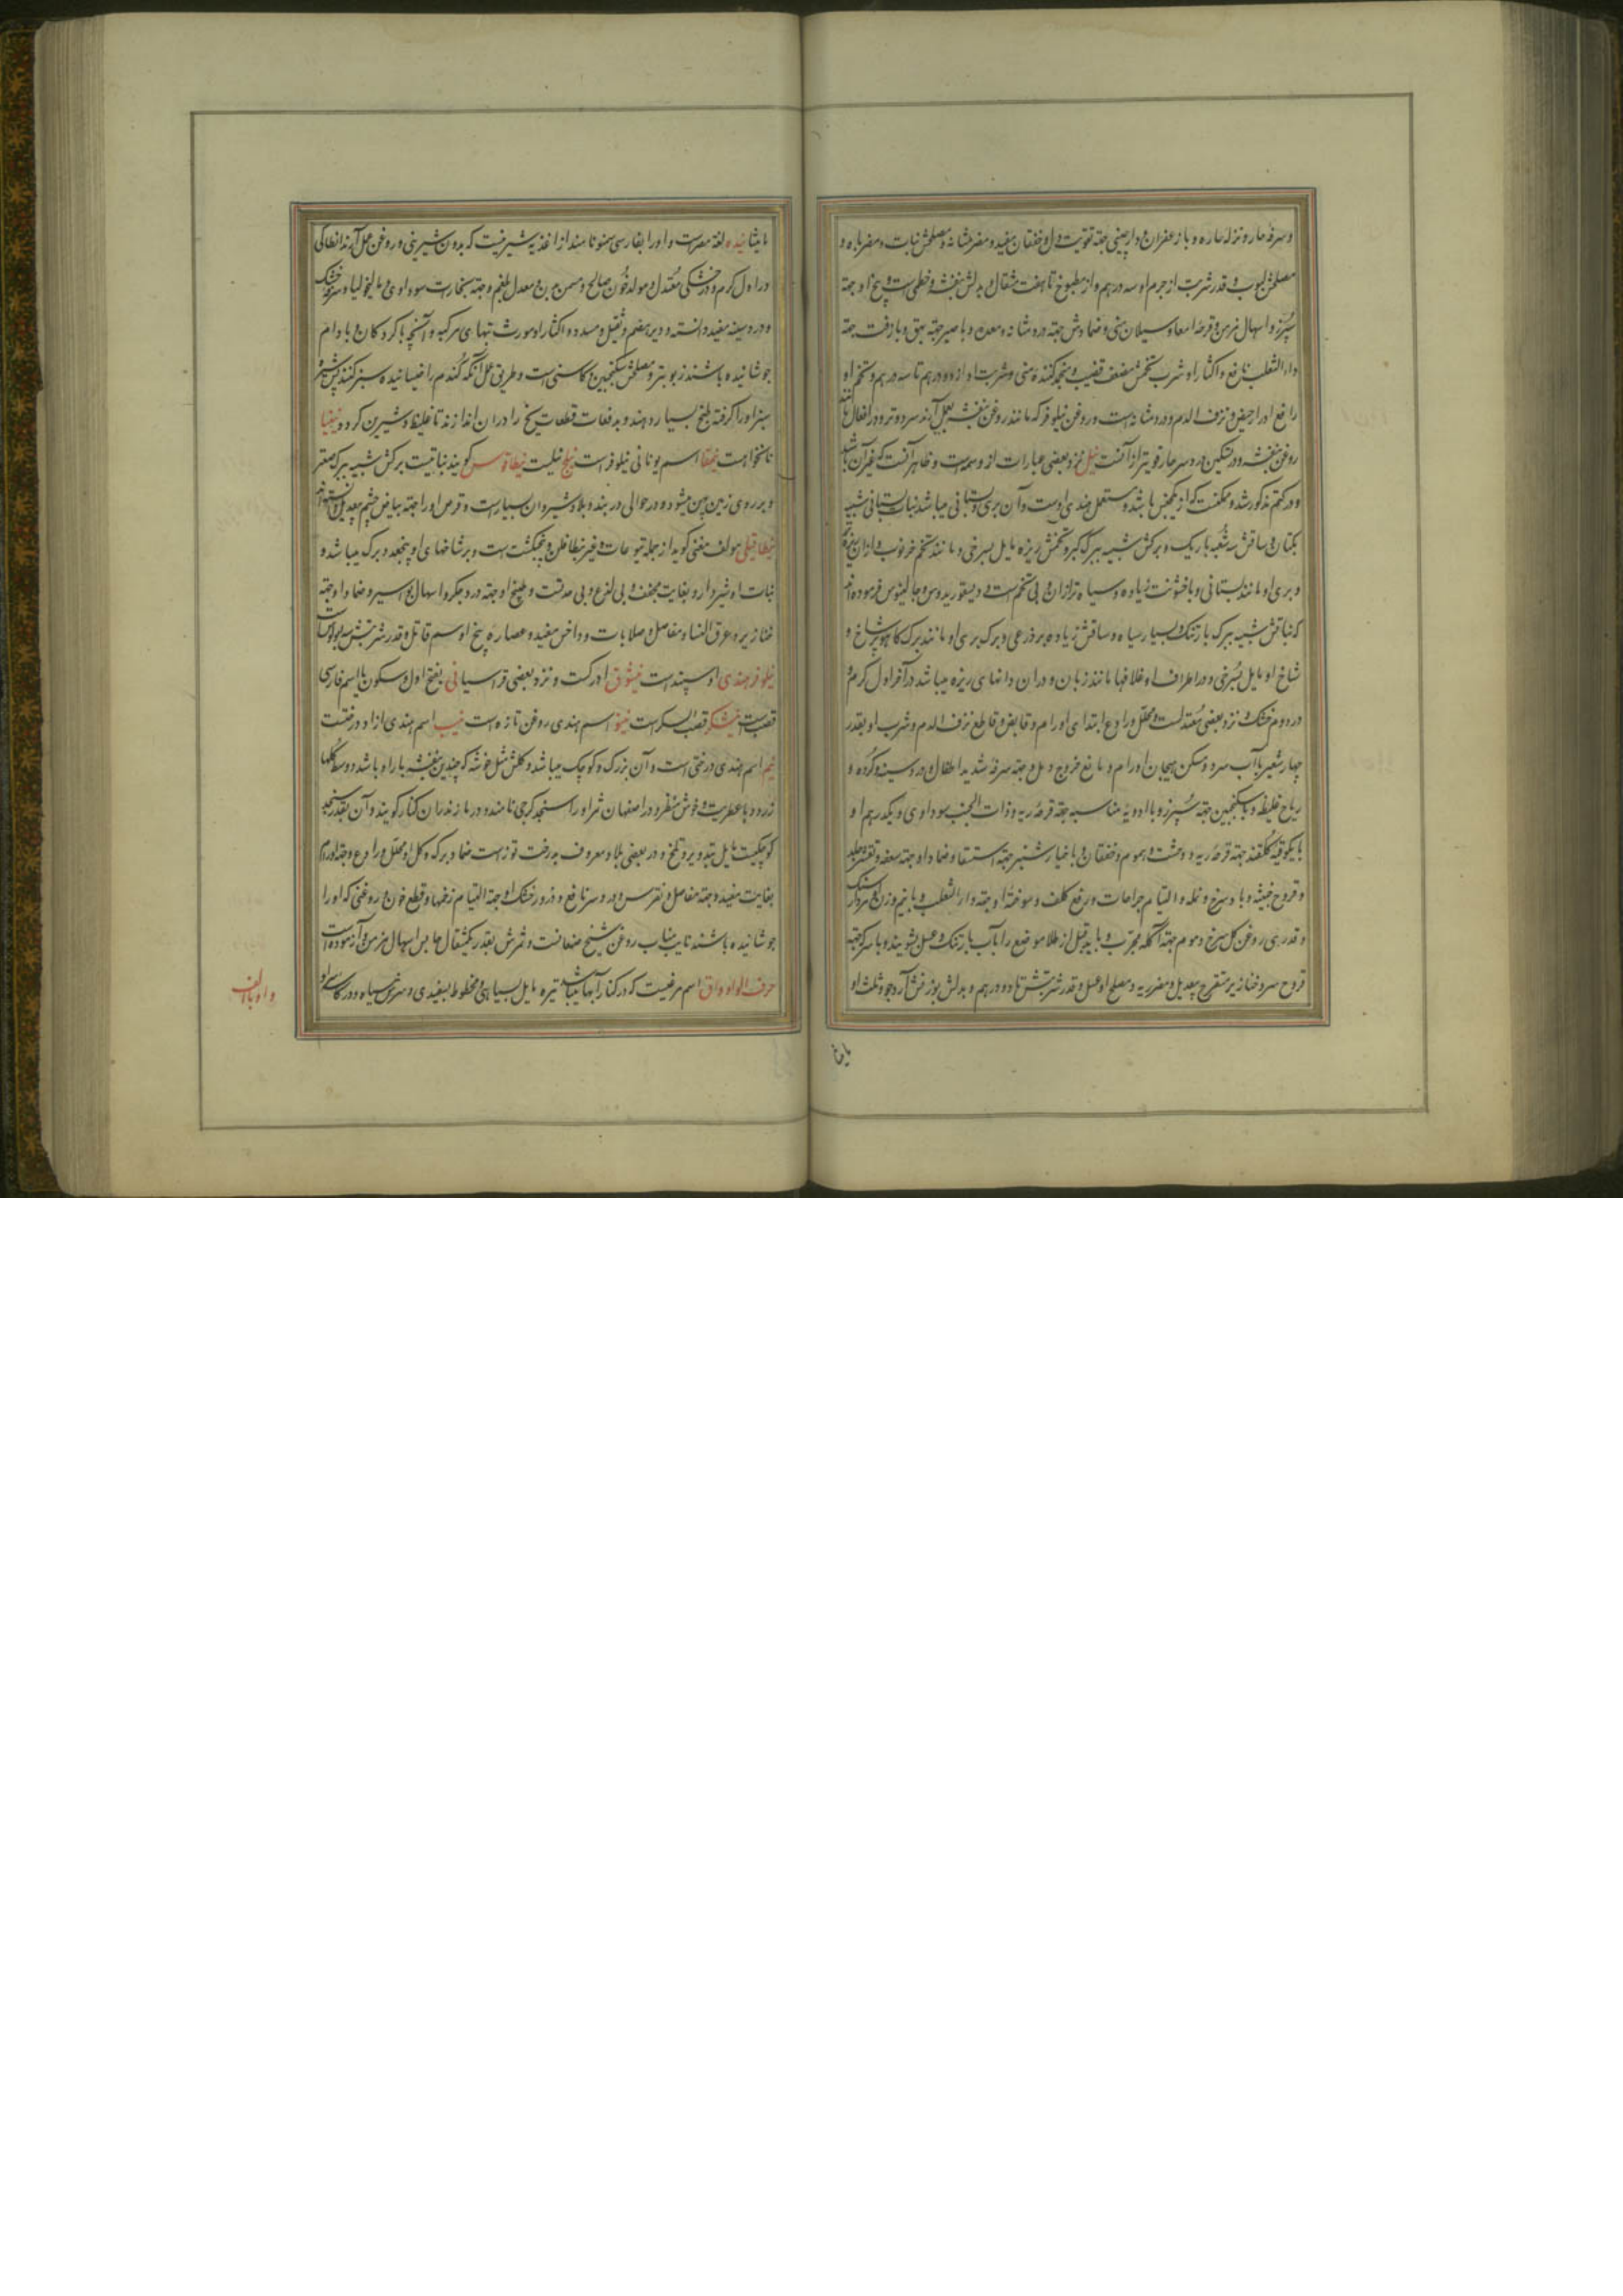 و سرفه حار و نزله حاره و با زعفران و دارچینی جهة تقویت دل و خفقان مفید و مضر مثانه و مصلحش نبات و مضر باه و
مصلحش لبوب و قدر شربت از جرم او سه درهم و از مطبوخ تا هفت مثقال و بدلش بنفشه و خطمی است و بیخ او جهة
سپرز و اسهال مزمن و قرحه امعا و سیلان منی و ضمادش جهة درد مثانه و معده و با صیر جهة بهق و با زفت جهة
داء الثعلب نافع و اکثار او شرب تخمش مضعف قضیب و منجمد کننده منی و شربت او از دو درهم تا سه درهم و تخم او
رافع ادرار حیض و نزف الدم و درد مثانه است و روغن نیلوفر که مانند روغن بنفشه بعمل آرند سرد و تر و در افعال مانند
روغن بنفشه و در تسکین درد سر حار قویتر از آنست نیل نزد بعضی عبارات از وسمه است و ظاهر آنست که غیر آن باشد
و در کتم مذکور شد و ممکنست که از یکجنس باشد و مستعمل هندی اوست و آن بری و بستانی میباشد نبات بستانی شبیه
بکتان و ساقش سه شعبه باریک و برکش شبیه ببرک کبر و تخمش ریزه مایل بسرخی و مانند تخم خرنوب و ازان
و بری او مانند بستانی و با خشونت زیاده و سیاه تر ازان و بی تخم است و دیسقوریدوس و جالینوس فرموده اند
که نباتش شبیه ببرک بارتنک و بسیار سیاه و ساقش زیاده بر ذرعی و برک بری او مانند برک کاهو پر شاخ و
شاخ او مایل بسرخی و در اطراف او غلافها مانند زبان و دران دانهای ریزه میباشد در آخر اول کرم و
در دوم خشک و نزد بعضی معتدلست و محلل و رادع ابتدای اورام و قابض و قاطع نزف الدم و شرب او بقدر
چهار شعیر با آب سرد مسکن هیجان اورام و مانع خروج دمل و جهة سرفه شدید اطفال و درد سینه و کرده و
ریاح غلیظه و با سکنجبین جهة سپرز و با ادویه مناسبه جهة قرحه ریه و ذات الجنب سوداوی و یکدرهم او
با یکوقیه کلقند جهة قرحه ریه و وحشت و هموم و خفقان و با خیار شنبر جهة استسقا و ضماد او جهة سعفه و تقشر جلد
و قروح خبیثه و با و نمله و التیام جراحات و رفع کلف و سوخته او جهة داء الثعلب و با نیم وزن او مردار سنک
و قدری روغن کل سرخ و موم جهة آکله مجرب و باید قبل از طلا موضع را بآب بارتنک و عسل بشویند و با سرکه جهة
قروح سر و خنازیر متقرح بیعدیل و مضر ریه و مصلح او عسل و قدر شربتش تا دو درهم و بدلش بوزنش آرد جو و ثلث او
مامیثا نیده لغة مصر است و او را بفارسی سمنو نامند از اغذیه شیرینیست که بدون شیرینی و روغن بعمل آرند انطاکی
در اول کرم و در خشکی معتدل و مولد خون صالح و مسمن بدن و معدل بلغم و جهة بخارات سوداوی و مالیخولیا و سرفه خشک
و درد سینه مفید دانسته و دیر هضم و ثقیل و مسدد و اکثار او مورث تبهای مرکبه و آنچه با کردکان و بادام
جوشانیده باشند زبونتر و مصلحش سکنجبین و کاسنی است و طریق عمل آنکه کندم را خیسانیده سبز کنند پس شیره
سبز او را کرفته طبخ بسیار دهند و بدفعات قطعات یخ را دران اندازند تا غلیظ و شیرین کردد نیفیا
نانخواه است نیمقا اسم یونانی نیلوفر است نیلج نیلست نیطاقوس کویند نباتیست برکش شبیه ببرک صعتر
و بر روی زمین پهن میشود و در حوالی دربند و بلاد شیروان بسیار است و قرص او را جهة بیاض چشم بیعدیل دانسته اند
نیطافیلی مولف مغنی کوید از جمله یتوعات و غیر نیطافلن و پنجنکشت است و بر شاخهای او پنجعدد برک میباشد و
نبات او شیردار و بغایت مجفف و بی لذع و بی حدتست و طبیخ او جهة درد جکر و اسهال و بواسیر و ضماد او جهة
خنازیر و عرق النسا و مفاصل و صلابات و داخس مفید و عصاره بیخ او سم قاتل و قدر شربتش سه بولوسات
نیلوفر هندی او سپند است نیشوق ادرکست و نزد بعضی قراسیا نی بفتح اول و سکون یا اسم فارسی
قصب است نیشکر قصب السکر است نینو اسم هندی روغن تازه است نیب اسم هندی ازاد درختست
نیم اسم هندی درختی است و آن بزرک و کوچک میباشد و کلش مثل خوشه که چندین بنفشه با او باشد و وسط کلها
زرد و با عطریت و خوش منظر و در اصفهان ثمر او را سنجد کرجی نامند و در مازندران کنار کویند و آن بقدر سنجد
کوچکیست مایل بتدویر و تلخ و در بعضی بلاد معروف بدرخت توز است ضماد برک و کل او محلل و رادع و جهة اورام
بغایت مفید و جهة مفاصل و نقرس و درد سر نافع و ذرور خشک او جهة التیام زخمها و قطع خون و روغنی که او را
جوشانیده باشند نایب مناب روغن شیخ صنعانست و ثمرش بقدر یکمثقال حابس اسهال مزمن و آزموده است
حرف الواو واق اسم مرغیست که در کنار آبها میباشد تیره مایل بسیاهی و مخطوط بسفیدی و سرش سیاه و در کاسه
واو با الف